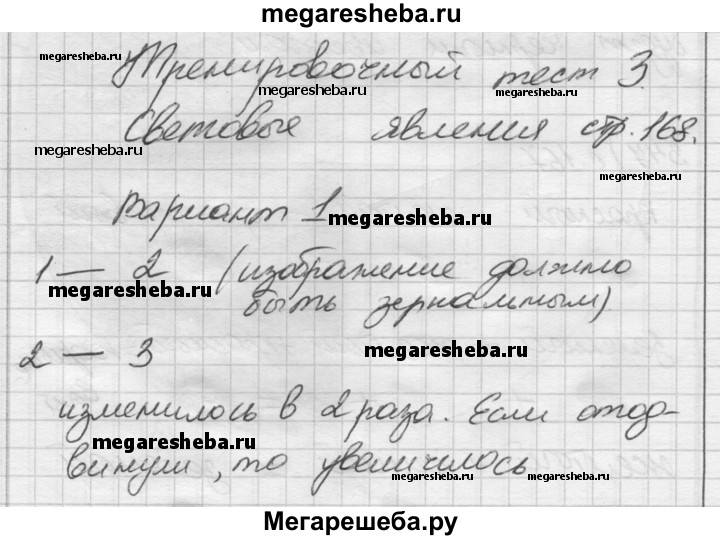 megaresheba.ru
Тренировочный тест 3.
megaresheba.ru
megaresheba.ru
megaresheba.ru
Световые явления стр. 168.
megaresheba.ru
megaresheba.ru
Вариант 1
megaresheba.ru
1 — 2 (изображение должно
megaresheba.ru
быть зеркальным)
2 — 3
megaresheba.ru
изменилось в 2 раза. Если отодо-
megaresheba.ru
винули, то увеличилось
megaresheba.ru
megaresheba.ru
Мегарешеба.ру